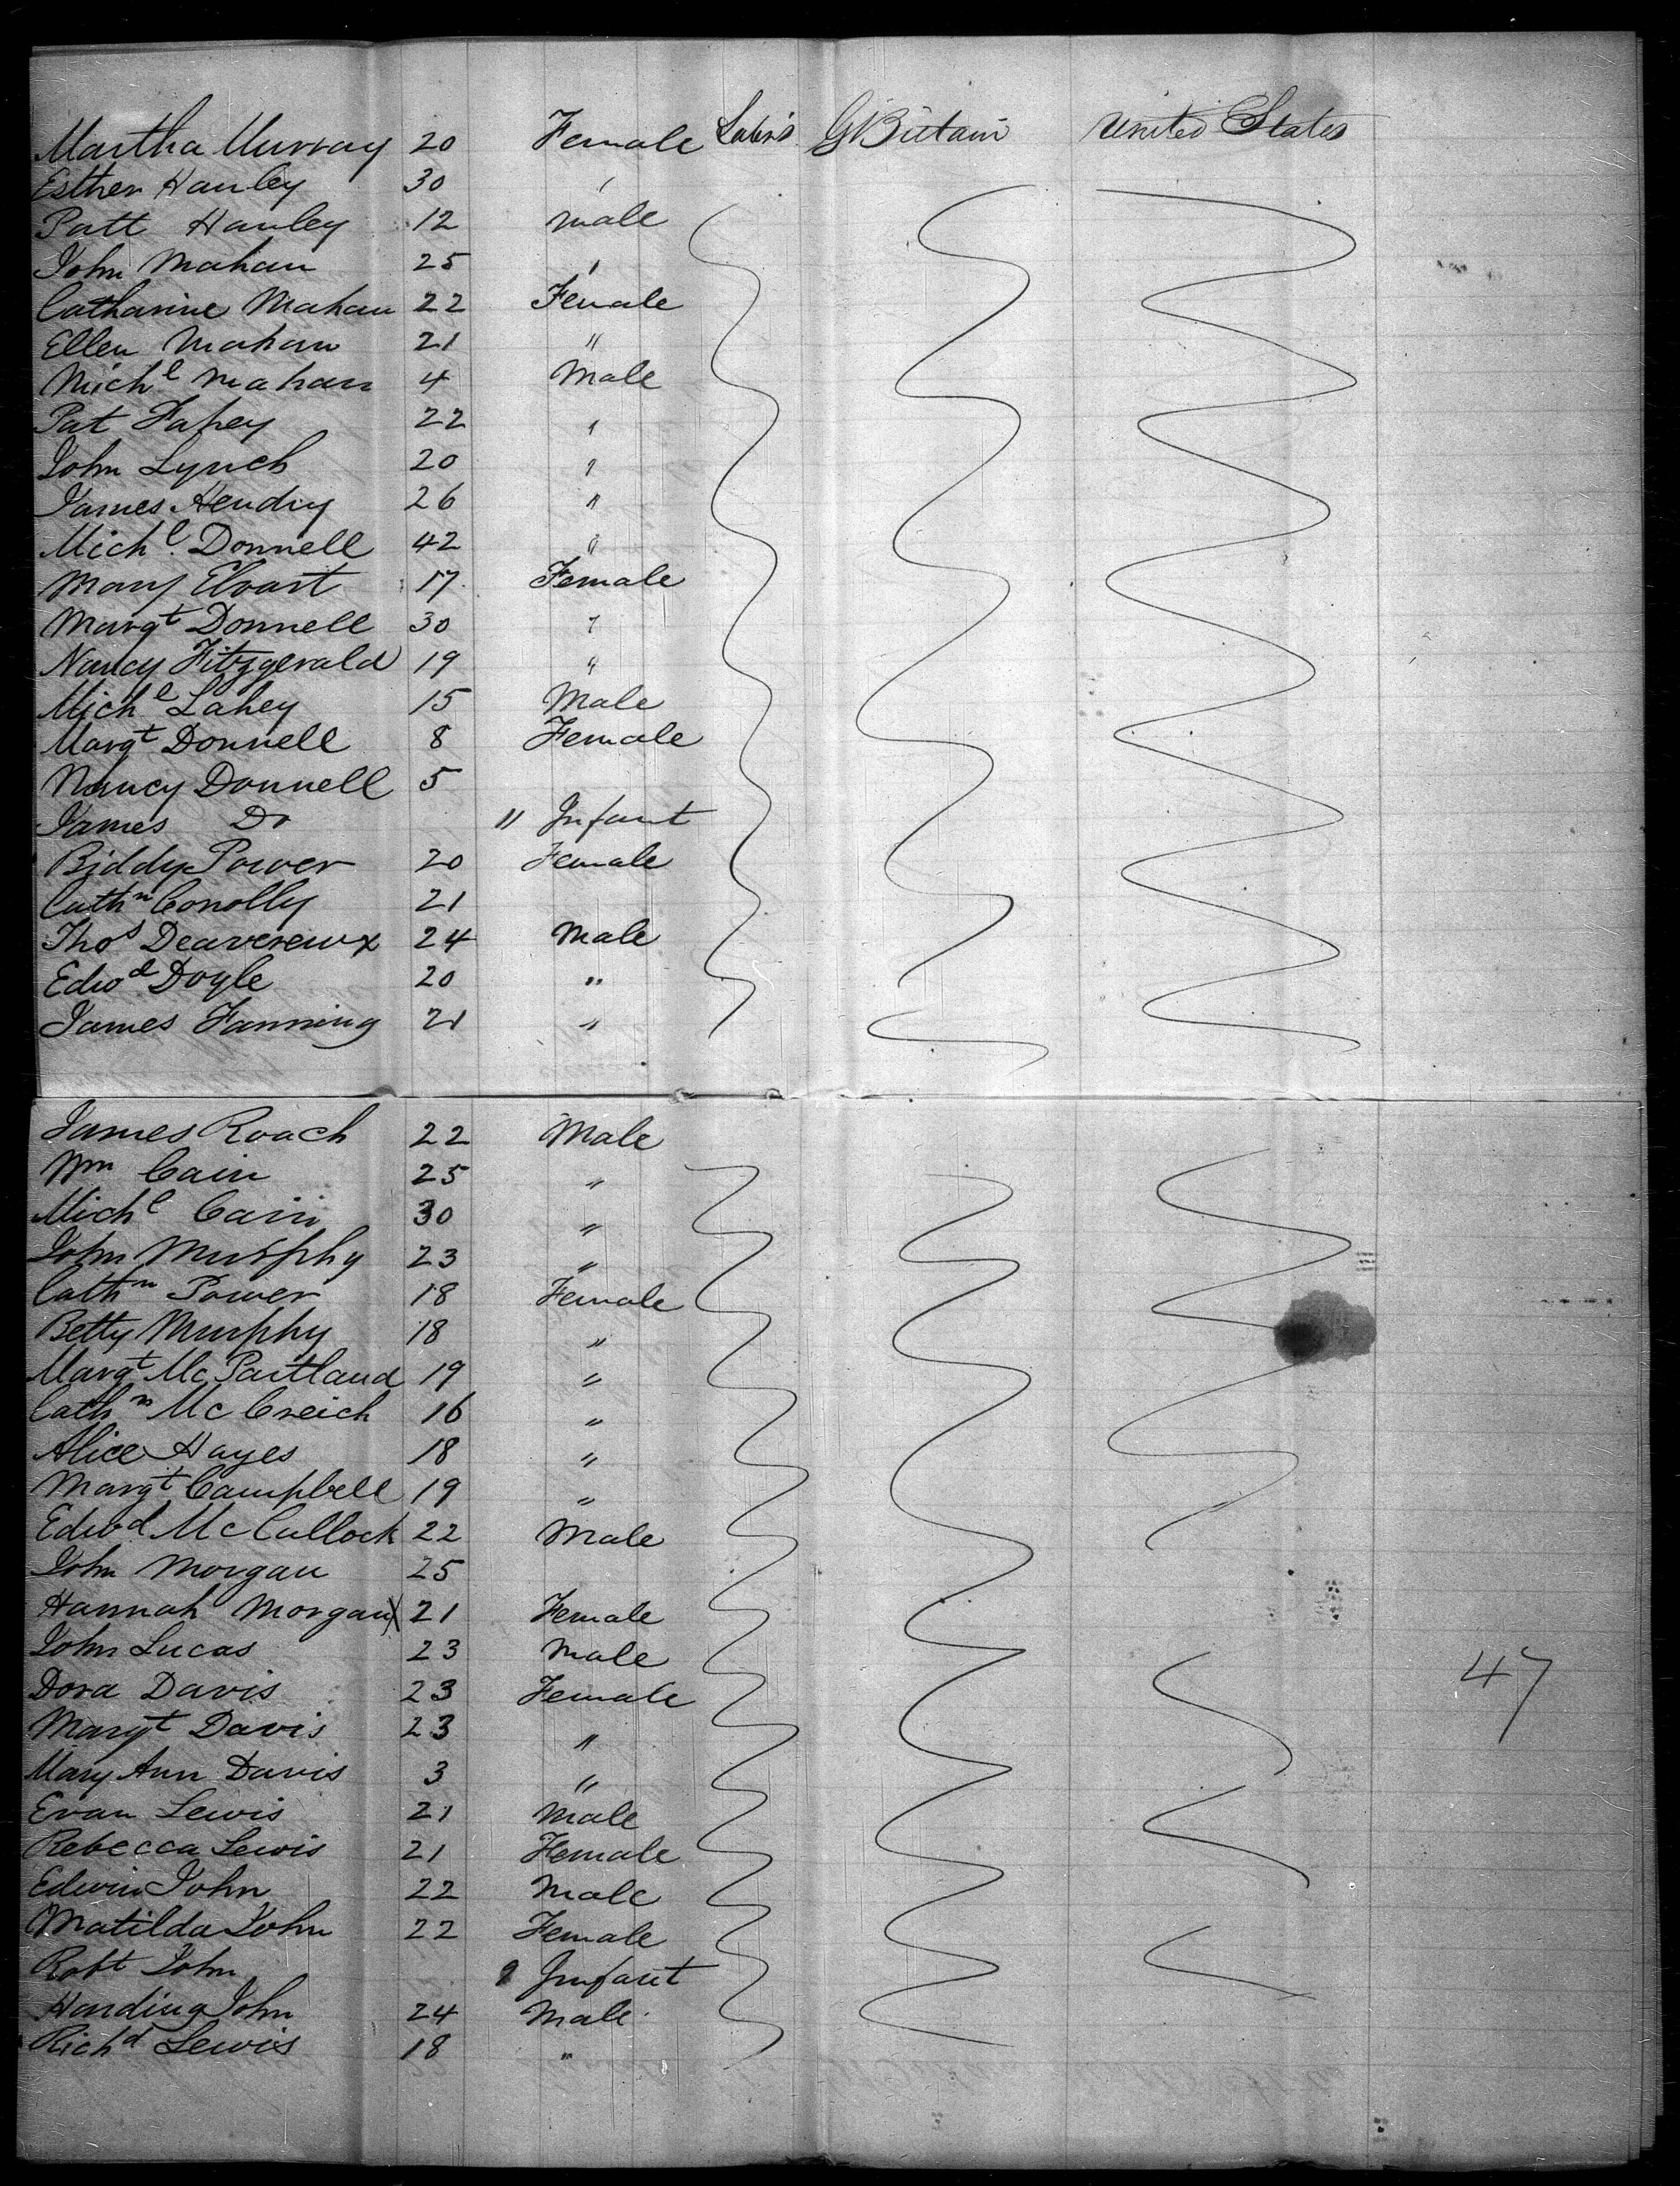 Martha Murray 20 Female Labrs GBritain United States
Esther Hanley 30 "
Patt Hanley 12 male
John Mahan 25 "
Catharine Mahan 22 Female
Ellen Mahan 21 "
Michl Mahan 4 Male
Pat Fahey 22 "
John Lynch 20 "
James Hendry 26 "
Michl. Donnell 42 "
Mary 17 Female
Margt Donnell 30 "
Nancy Fitzgerald 19 "
Michl Lahey 15 Male
Margt Donnell 8 Female
Nancy Donnell 5
James Do " Infant
Biddy Power 20 Female
Cathn Conolly 21
Thos Deavereux 24 Male
Edwd Doyle 20 "
James Fanning 21 "
James Roach 22 Male
Wm Cain 25 "
Michl Cain 30 "
John Murphy 23 "
Cathn Power 18 Female
Betty Murphy 18 "
Margt McPartland 19 "
Cathn McCreich 16 "
Alice Hayes 18 "
Margt Campbell 19 "
Edwd McCullock 22 Male
John Morgan 25
Hannah Morgan X 21 Female
John Lucas 23 Male
Dora Davis 23 Female 47
Margt Davis 23 "
Mary Ann Davis 3 "
Evan Lewis 21 Male
Rebecca Lewis 21 Female
Edwin John 22 Male
Matilda John 22 Female
Robt John Infant
Harding John 24 Male
Richd Lewis 18 "